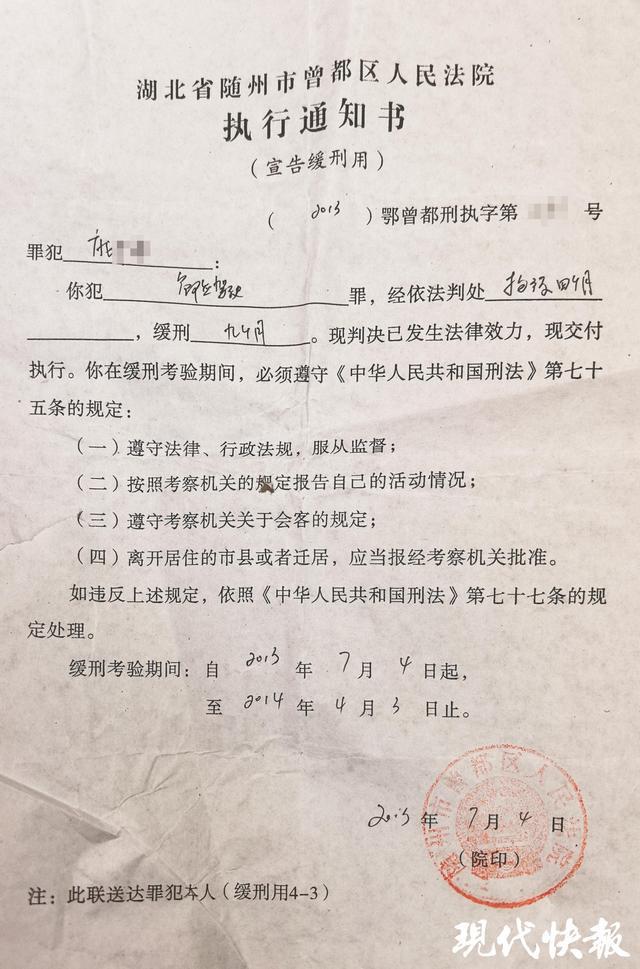 湖北省随州市曾都区人民法院
执行通知书
(宣告缓刑用)
( 2013 )鄂曾都刑执字第 号
罪犯 :
你犯 危险驾驶 罪,经依法判处 拘役四个月
,缓刑 九个月 。现判决已发生法律效力,现交付
执行。你在缓刑考验期间,必须遵守《中华人民共和国刑法》第七十
五条的规定:
(一)遵守法律、行政法规,服从监督;
(二)按照考察机关的规定报告自己的活动情况;
(三)遵守考察机关关于会客的规定;
(四)离开居住的市县或者迁居,应当报经考察机关批准。
如违反上述规定,依照《中华人民共和国刑法》第七十七条的规
定处理。
缓刑考验期间:自 2013 年 7 月 4 日起,
至 2014 年 4 月 3 日止。
2013 年 7 月 4 日
(院印)
随州市曾都区人民法院
注:此联送达罪犯本人(缓刑用4-3)
现代快報